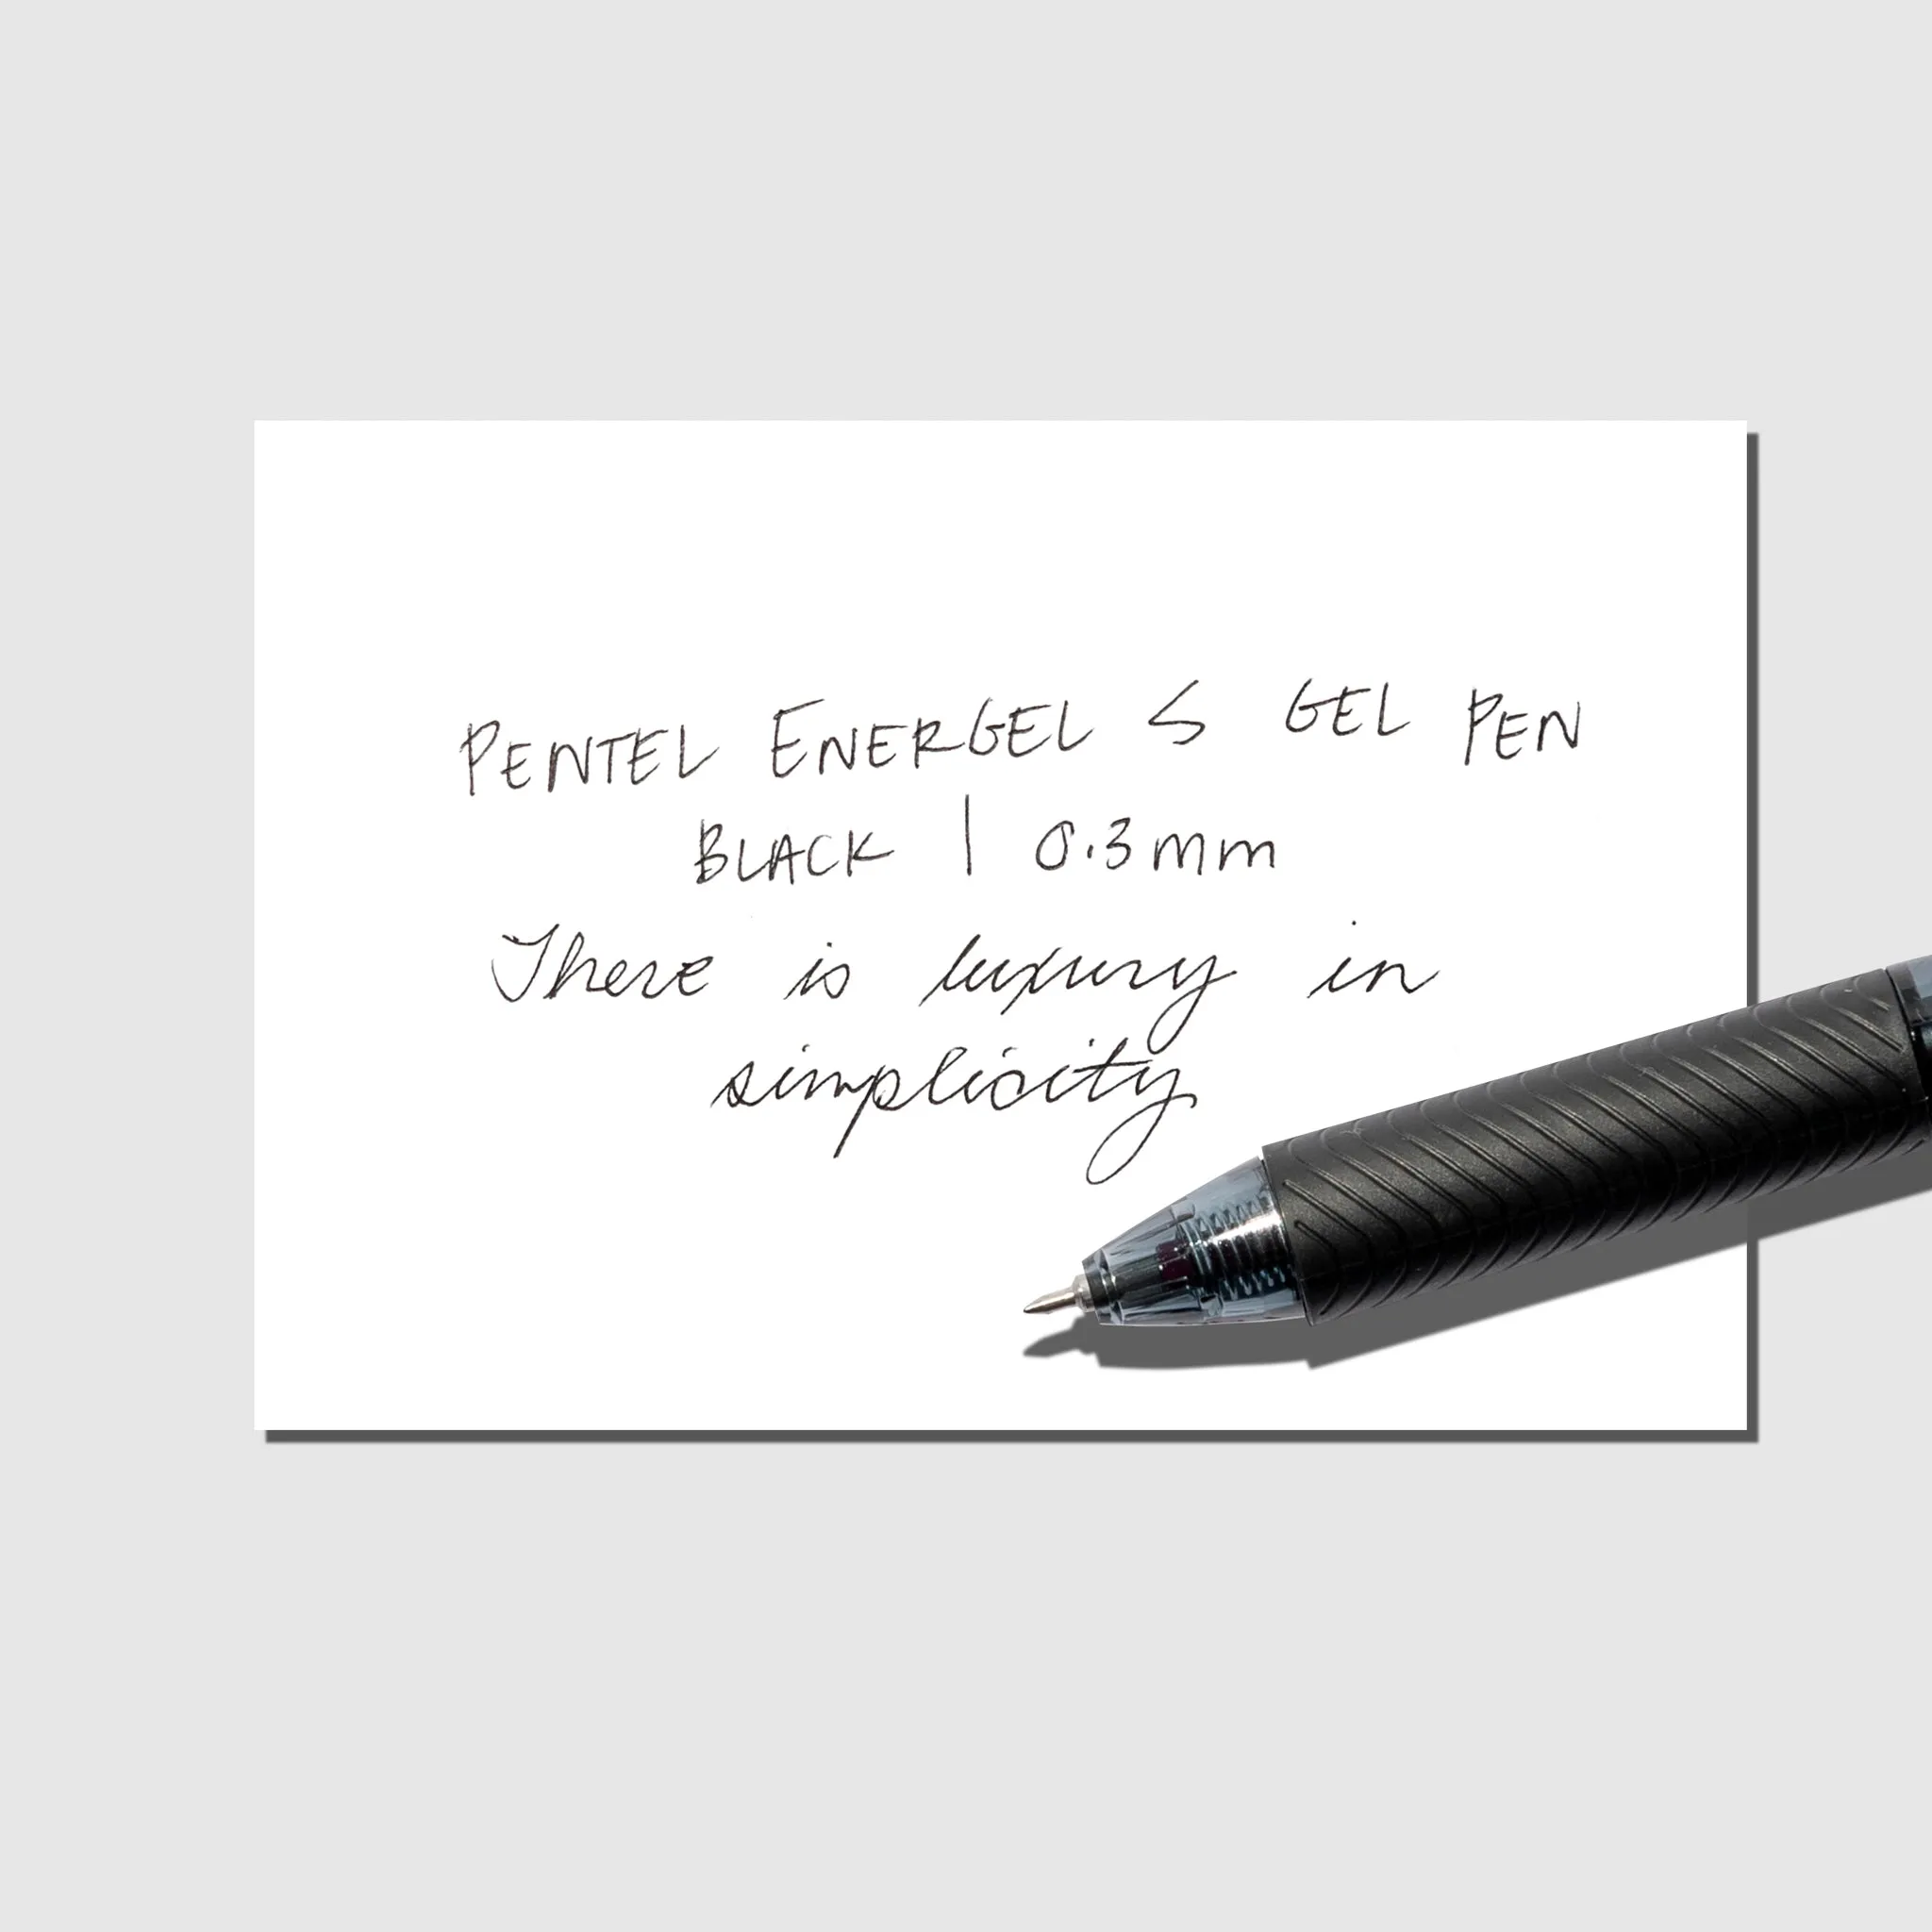 PENTEL ENERGEL S GEL PEN
BLACK | 0.3mm
There is luxury in
simplicity